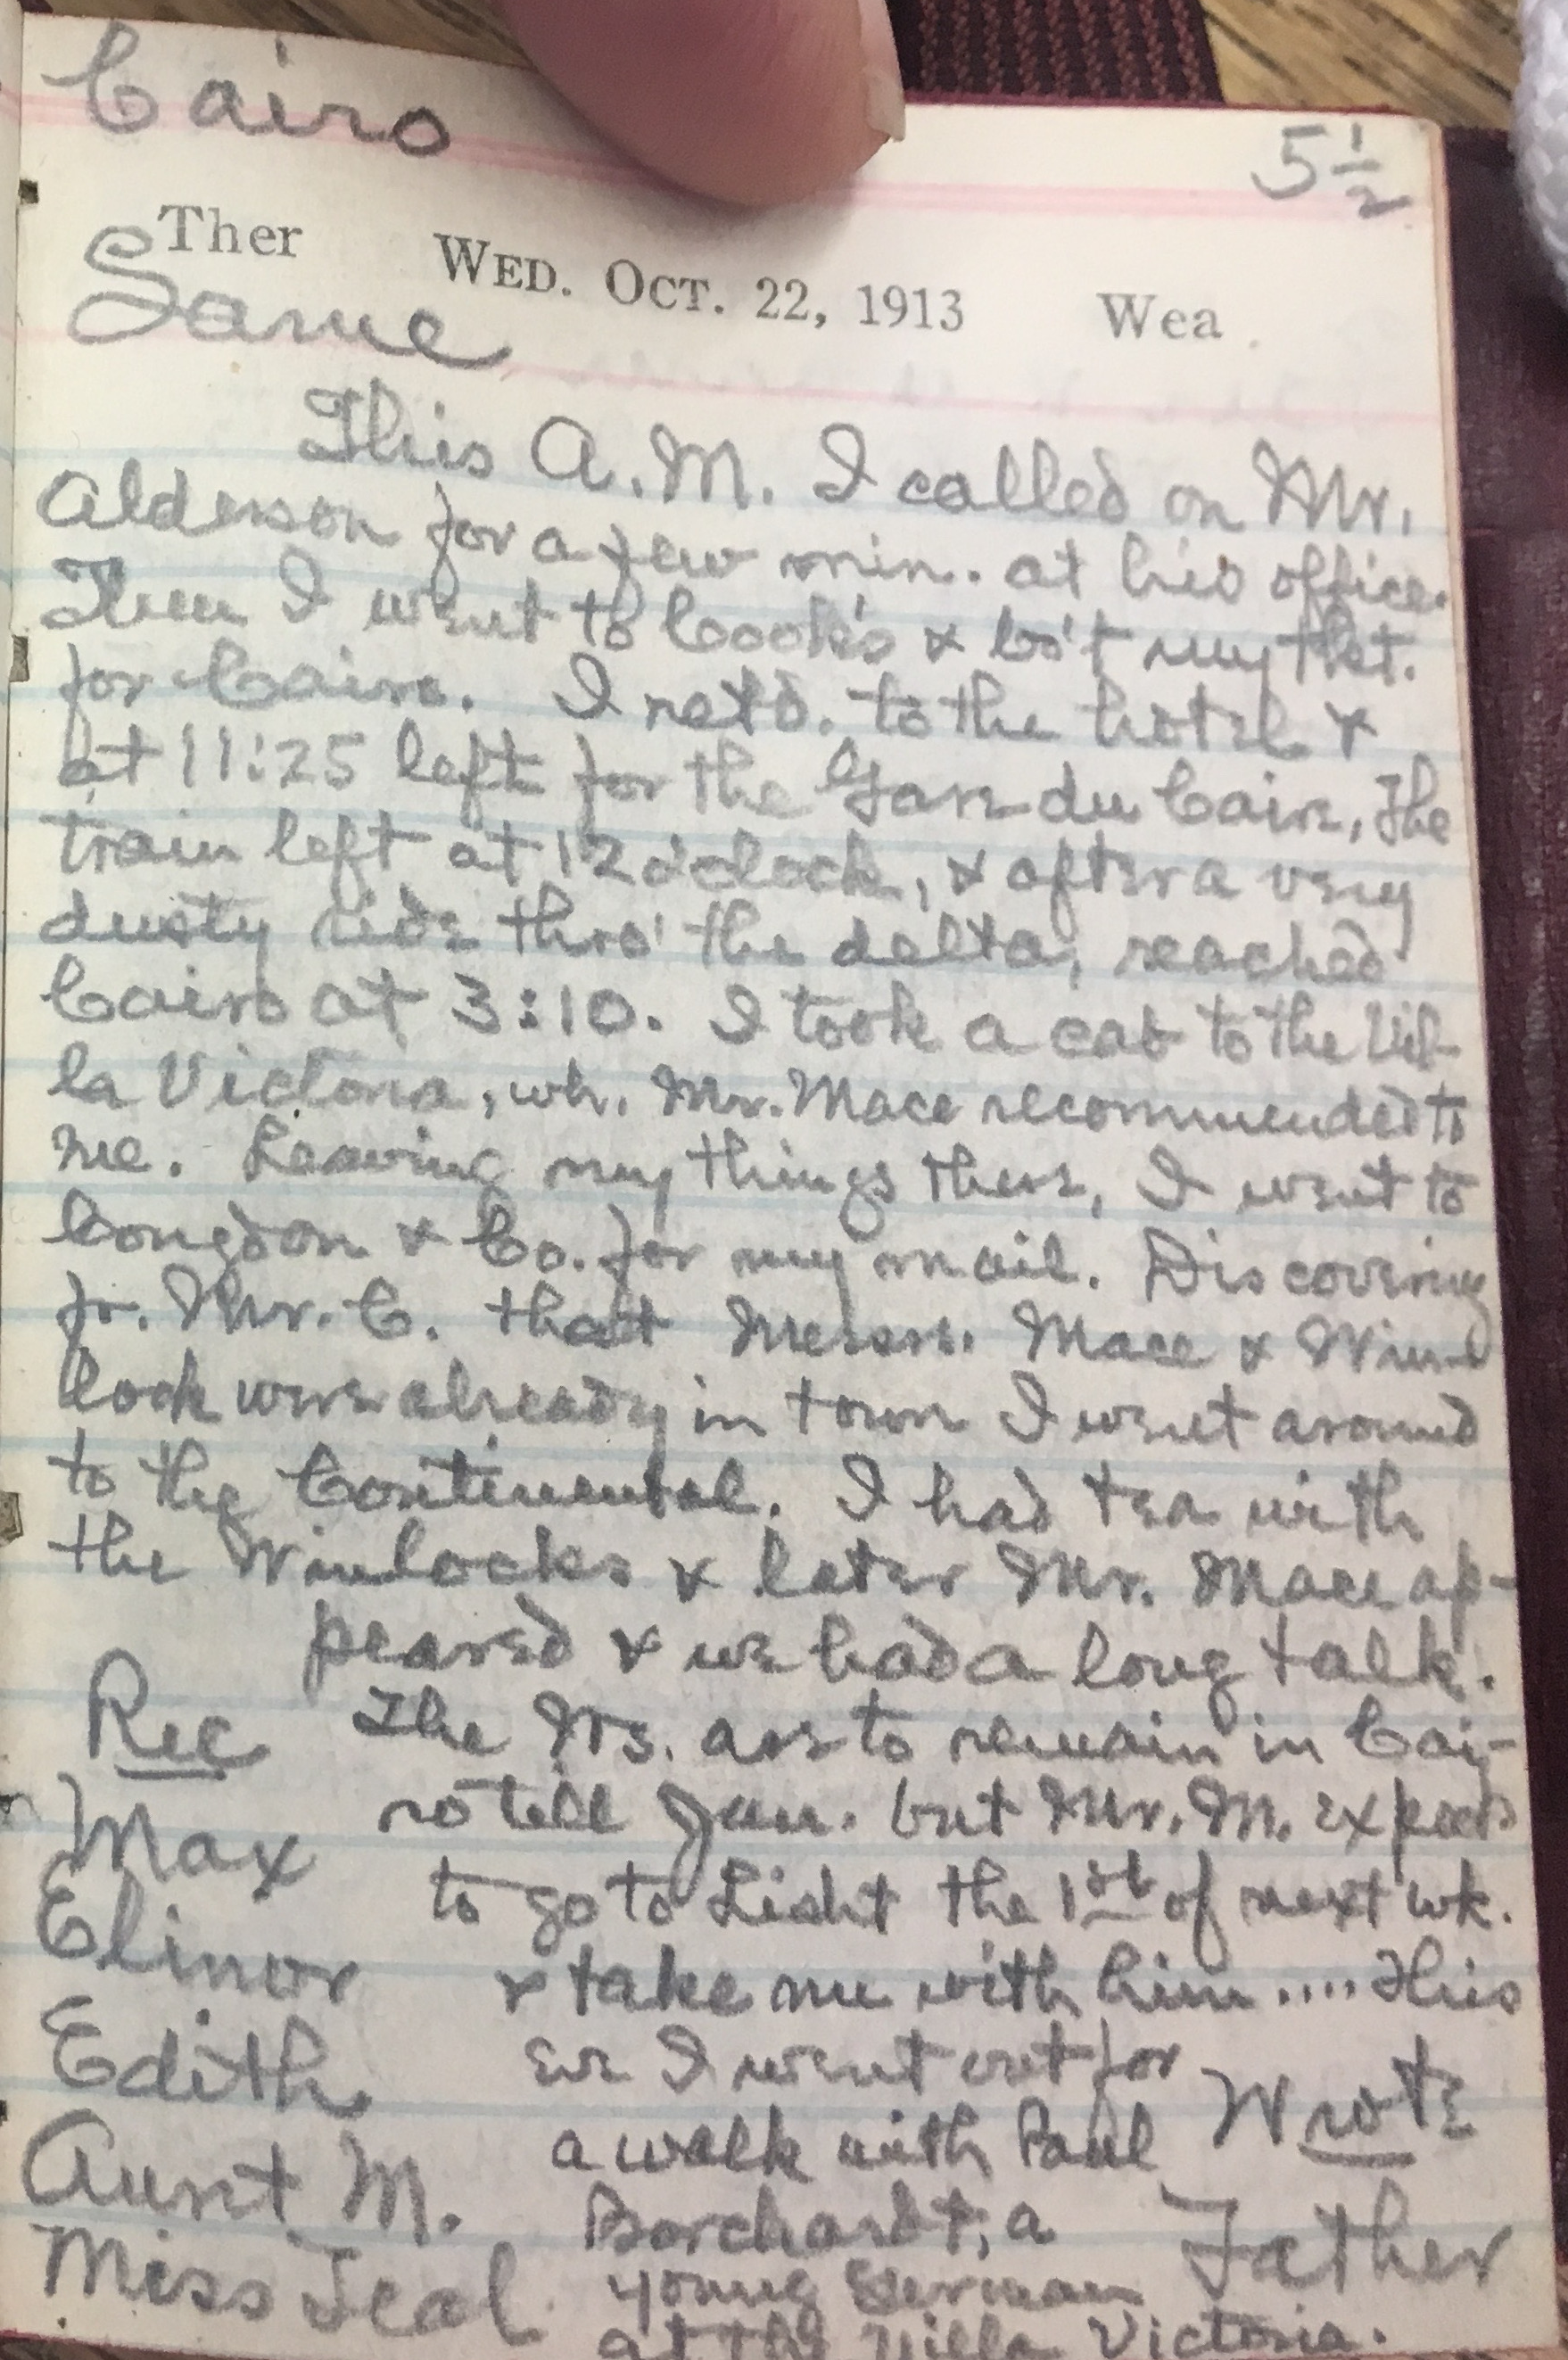 Cairo
5 1/2
Ther WED. OCT. 22, 1913 Wea
Same
This A.M. I called on Mr.
Alderson for a few min. at his office.
Then I went to Cook's & bo't my tkt.
for Cairo. I retd. to the hotel &
at 11:25 left for the Gare du Caire, The
train left at 12 o'clock, & after a very
dusty ride thro' the delta, reached
Cairo at 3:10. I took a cab to the Vil-
la Victoria, wh. Mr. Mace recommended to
me. Leaving my things there, I went to
Congdon & Co. for my mail. Discovering
fr. Mr. C. that Messrs. Mace & Win-
lock were already in town I went around
to the Continental. I had tea with
the Winlocks & later Mr. Mace ap-
peared & we had a long talk.
The Ws. are to remain in Cai-
ro till Jan. but Mr. M. expects
to go to Lisht the 1st of next wk.
& take me with him.... This
eve I went out for
a walk with Paul
Borchardt, a
young German
at the Villa Victoria.
Rec
Max
Elinor
Edith
Aunt M.
Miss Teal
Wrote
Father